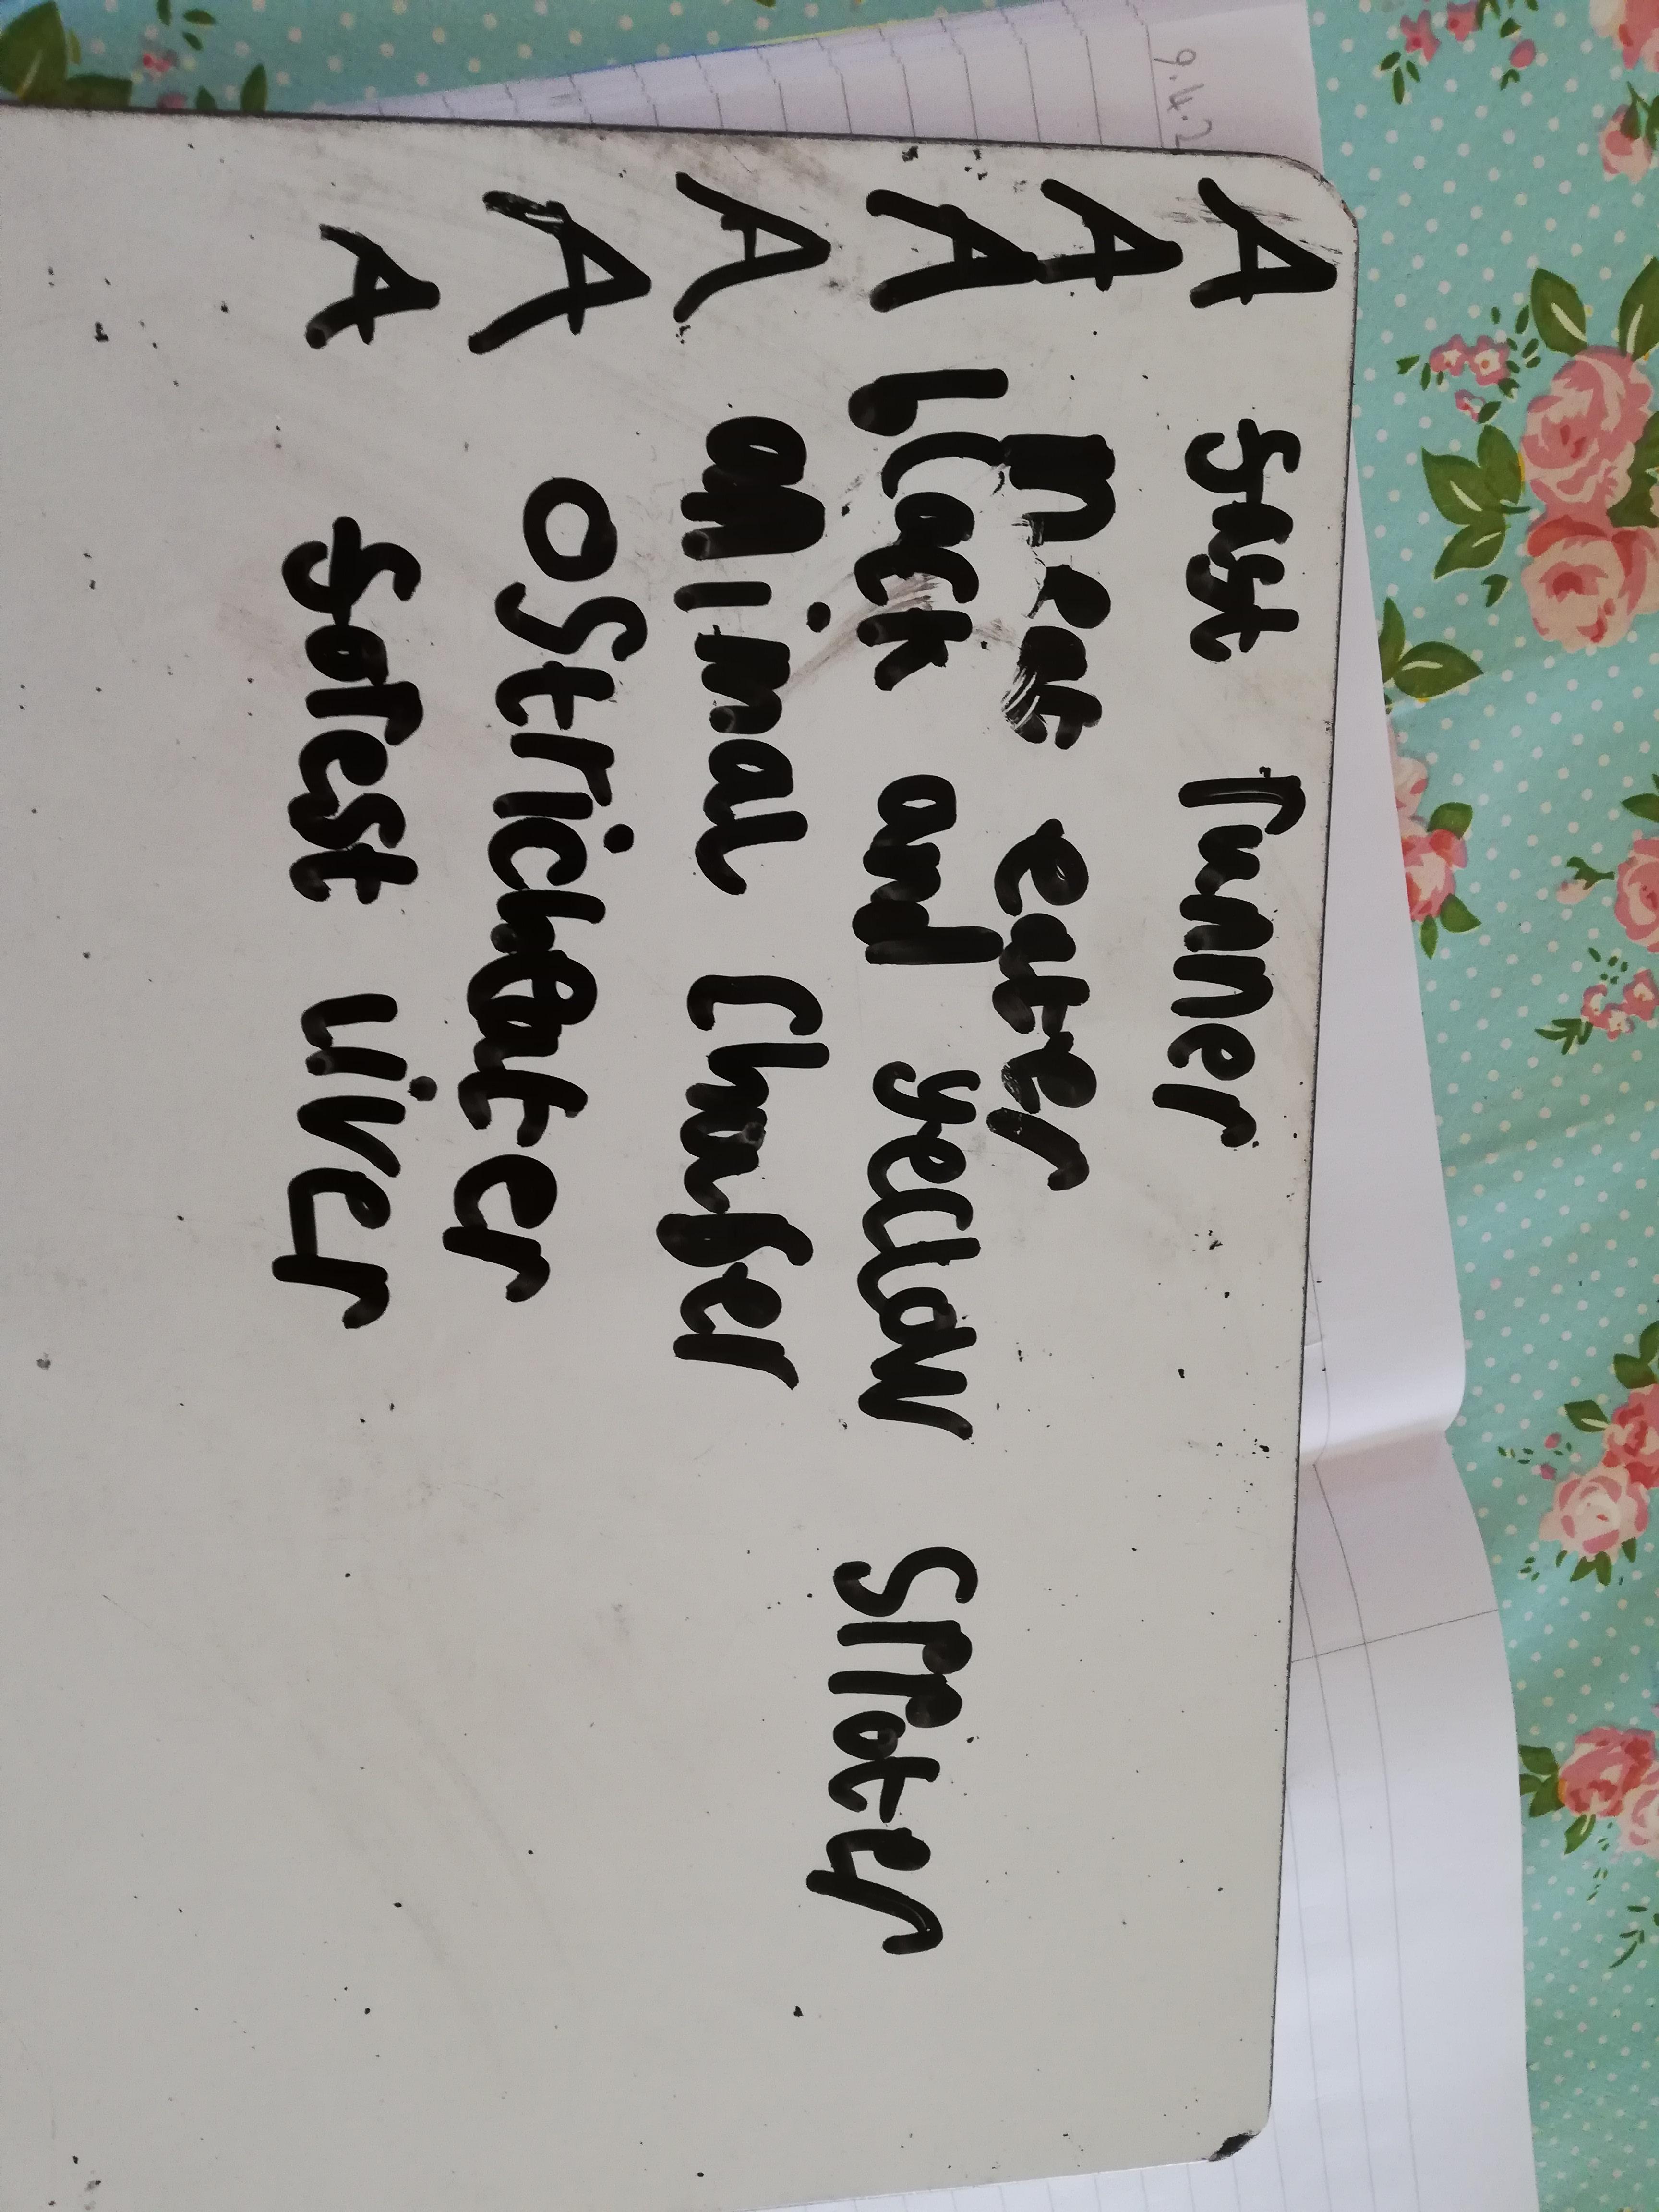 9.4.2
A fast runner
A meat eater
A black and yellow spoter
A animal Chaser
A ostrich eater
A forest liver